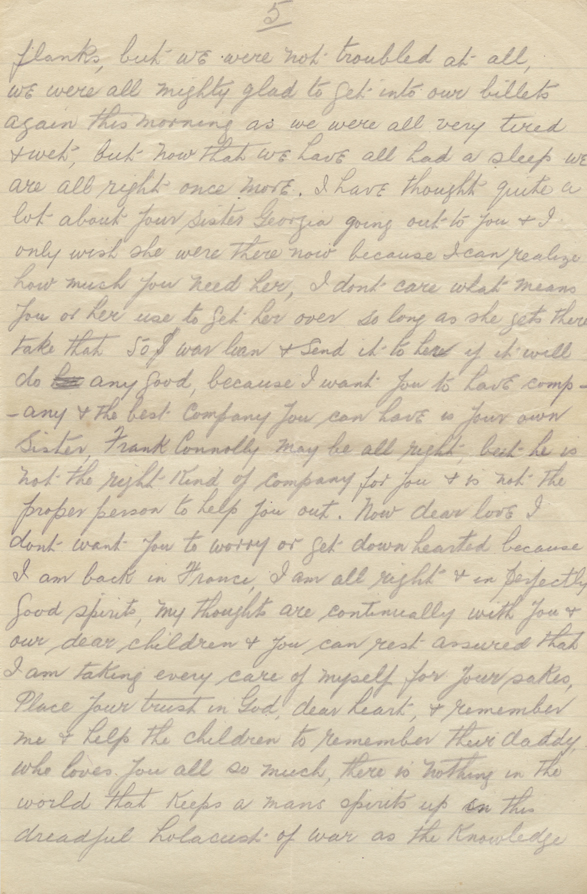 5
flanks, but we were not troubled at all,
we were all mighty glad to get into our billets
again this morning as we were all very tired
& wet, but now that we have all had a sleep we
are all right once more. I have thought quite a
lot about your sister Georgia going out to you & I
only wish she were there now because I can realize
how much you need her, I dont care what means
you or her use to get her over so long as she gets there
take that 50$ war loan & send it to her if it will
do any good, because I want you to have comp-
-any & the best company you can have is your own
sister, Frank Connolly may be all right, but he is
not the right kind of company for you & is not the
proper person to help you out. Now dear love I
dont want you to worry or get down hearted because
I am back in France, I am all right & in perfectly
good spirits, my thoughts are continually with you &
our dear children & you can rest assured that
I am taking every care of myself for your sakes,
Place your trust in God, dear heart, & remember
me & help the children to remember their daddy
who loves you all so much, there is nothing in the
world that keeps a mans spirits up in this
dreadful holacust of war as the knowledge